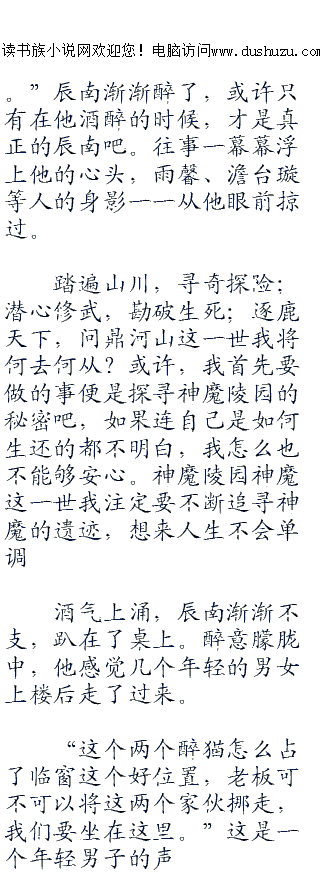 读书族小说网欢迎您！电脑访问www.dushuzu.com
。”辰南渐渐醉了，或许只
有在他酒醉的时候，才是真
正的辰南吧。往事一幕幕浮
上他的心头，雨馨、澹台璇
等人的身影一一从他眼前掠
过。
踏遍山川，寻奇探险；
潜心修武，勘破生死；逐鹿
天下，问鼎河山这一世我将
何去何从？或许，我首先要
做的事便是探寻神魔陵园的
秘密吧，如果连自己是如何
生还的都不明白，我怎么也
不能够安心。神魔陵园神魔
这一世我注定要不断追寻神
魔的遗迹，想来人生不会单
调
酒气上涌，辰南渐渐不
支，趴在了桌上。醉意朦胧
中，他感觉几个年轻的男女
上楼后走了过来。
“这个两个醉猫怎么占
了临窗这个好位置，老板可
不可以将这两个家伙挪走，
我们要坐在这里。”这是一
个年轻男子的声